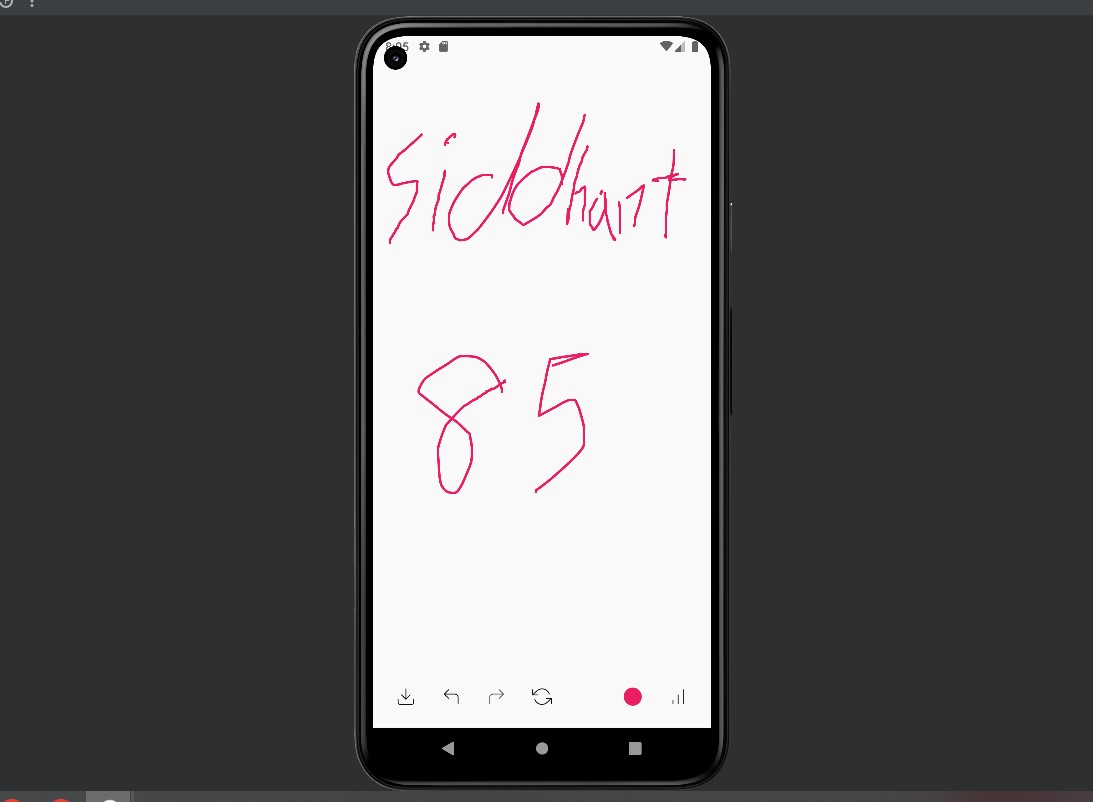 8:05
Siddhant
85